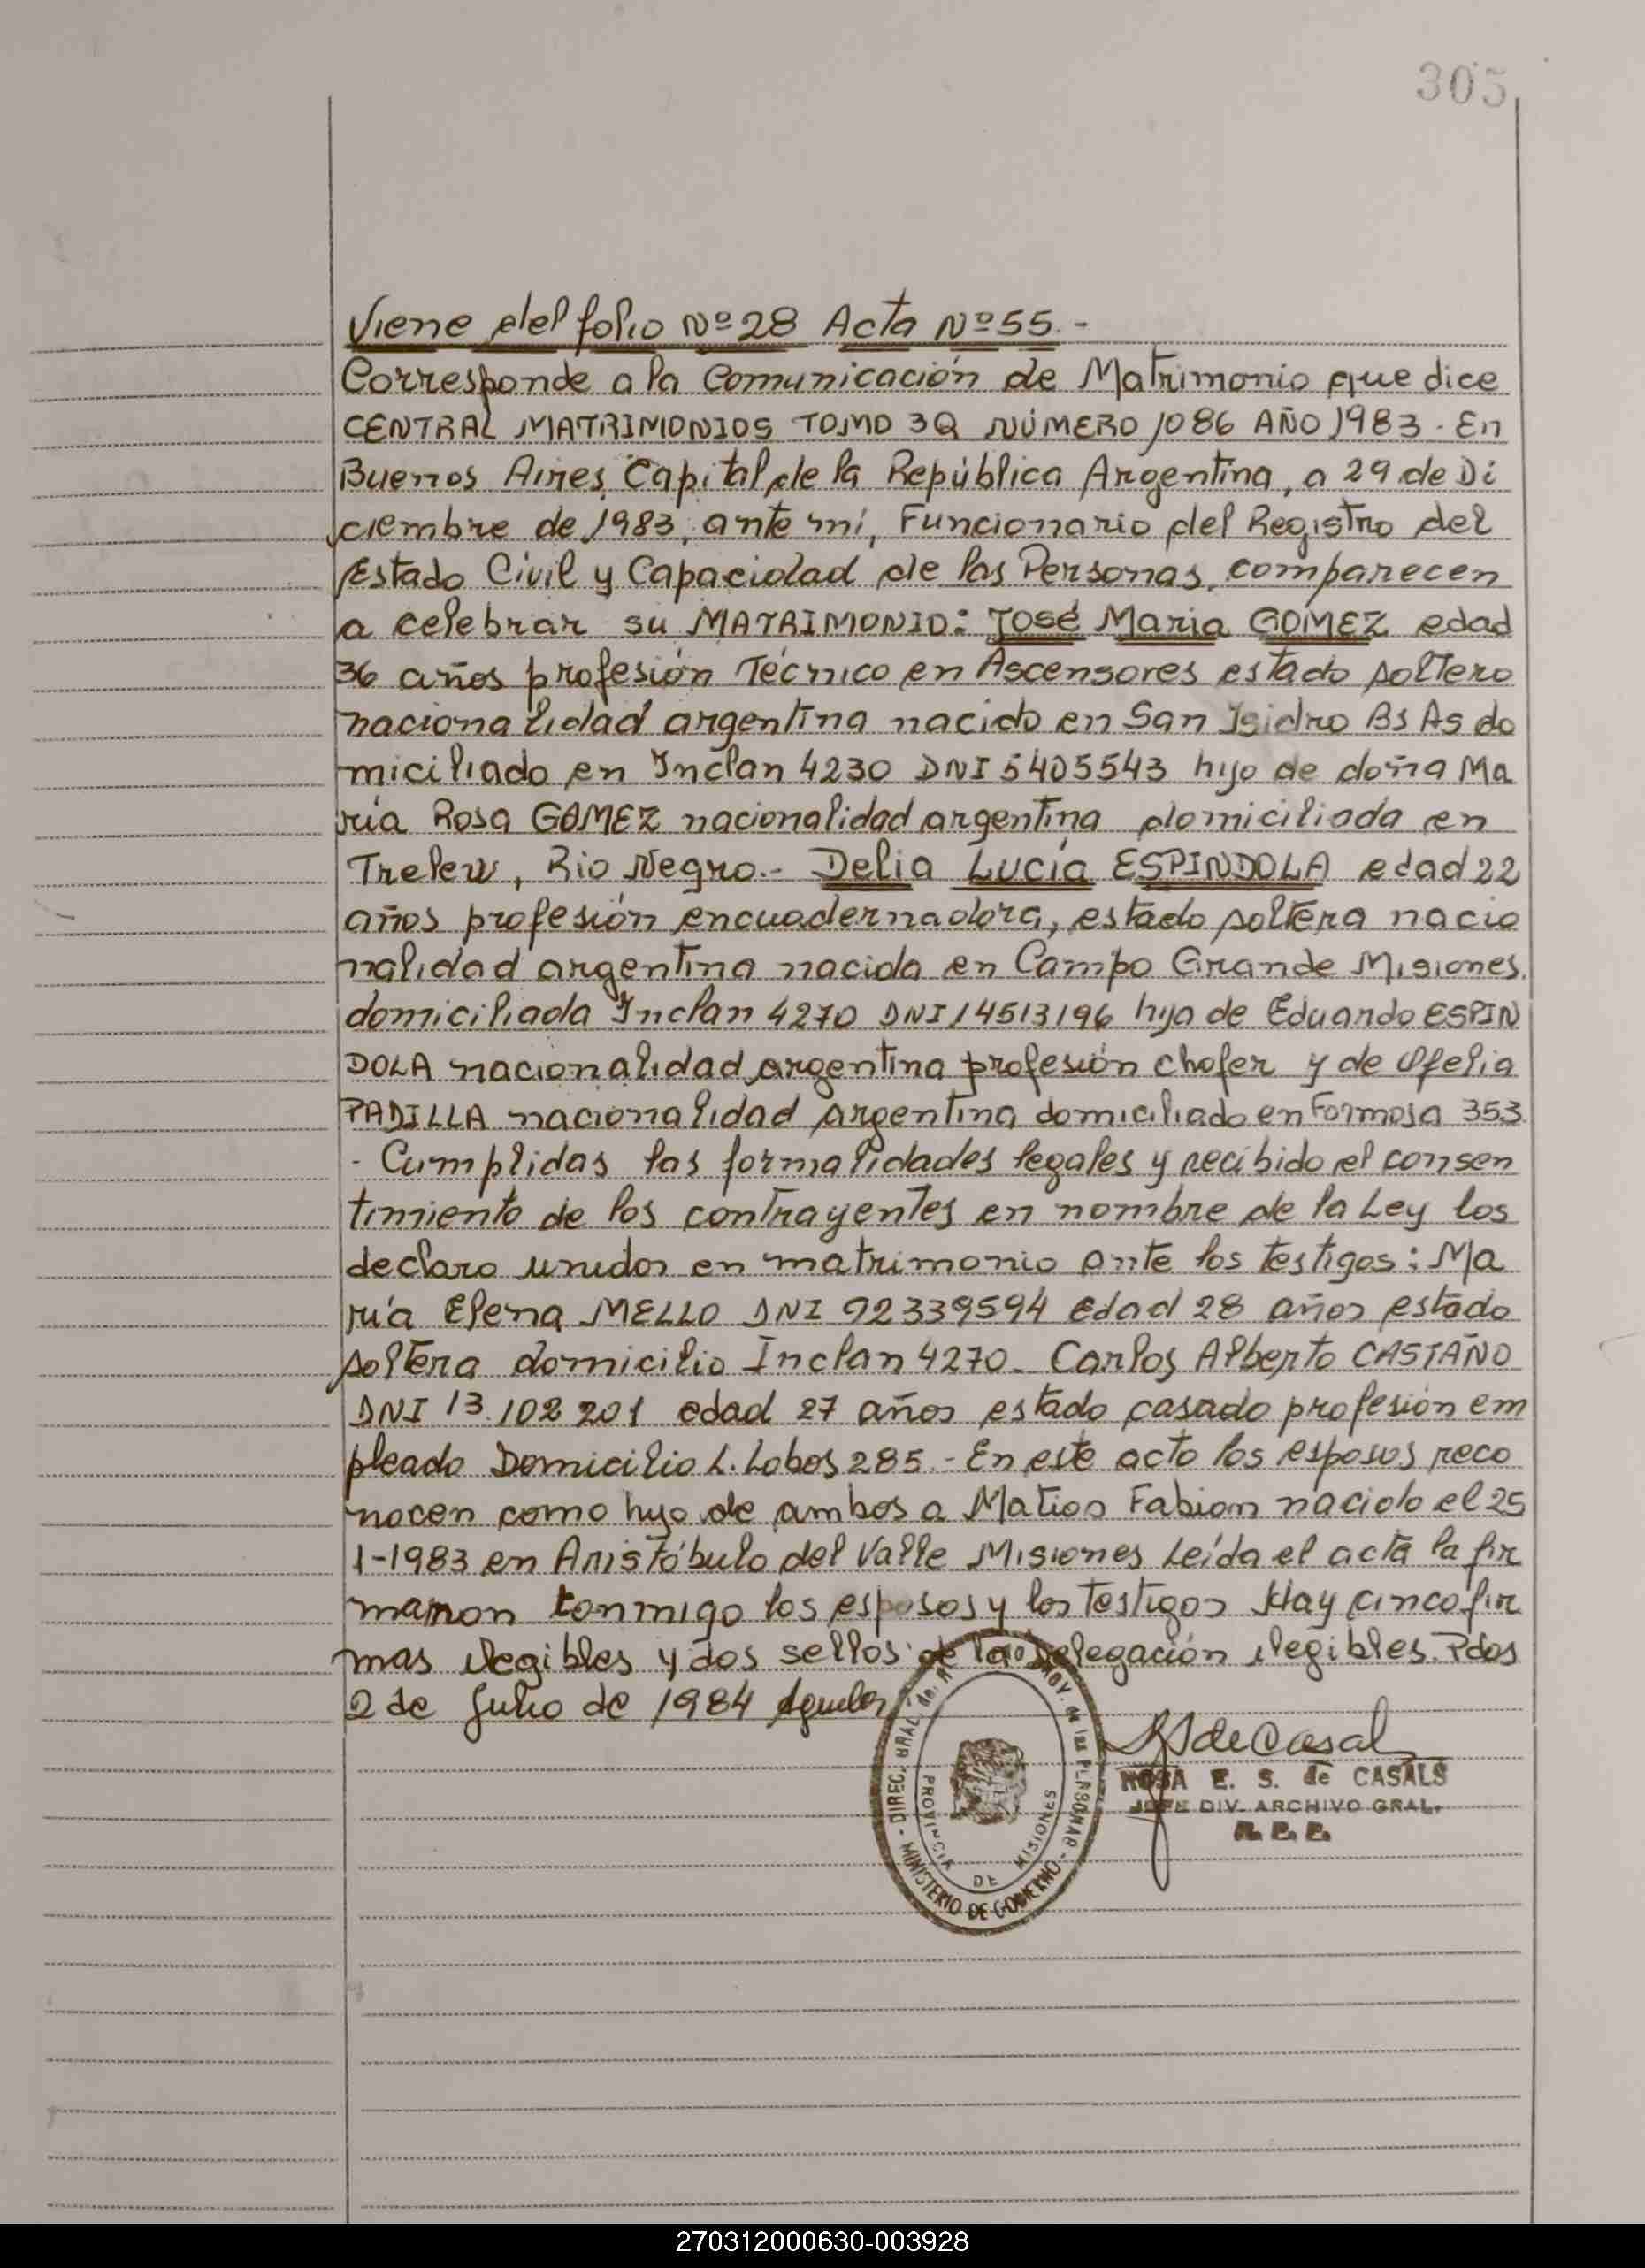 305
Viene del folio Nº 28 Acta Nº 55.-
Corresponde a la Comunicación de Matrimonio que dice
CENTRAL MATRIMONIOS TOMO 3Q NÚMERO 1086 AÑO 1983. En
Buenos Aires, Capital de la República Argentina, a 29 de Di
ciembre de 1983, ante mí, Funcionario del Registro del
Estado Civil y Capacidad de las Personas, comparecen
a celebrar su MATRIMONIO: José Maria GOMEZ edad
36 años profesión Técnico en Ascensores estado soltero
nacionalidad argentina nacido en San Isidro Bs As do
miciliado en Inclan 4230 DNI 5405543 hijo de doña Ma
ría Rosa GOMEZ nacionalidad argentina domiciliada en
Trelew, Rio Negro.- Delia Lucía ESPINDOLA edad 22
años profesión encuadernadora, estado soltera nacio
nalidad argentina nacida en Campo Grande Misiones.
domiciliada Inclan 4270 DNI 14513196 hija de Eduardo ESPIN
DOLA nacionalidad argentina profesión chofer y de Ofelia
PADILLA nacionalidad argentina domiciliado en Formosa 353.
- Cumplidas las formalidades legales y recibido el consen
timiento de los contrayentes en nombre de la Ley los
declaro unidos en matrimonio ante los testigos: Ma
ría Elena MELLO DNI 92339594 edad 28 años estado
soltera domicilio Inclan 4270. Carlos Alberto CASTAÑO
DNI 13.102 201 edad 27 años estado casado profesión em
pleado Domicilio L. Lobos 285.- En este acto los esposos reco
nocen como hijo de ambos a Matias Fabian nacido el 25
1-1983 en Aristóbulo del Valle Misiones Leída el acta la fir
maron conmigo los esposos y los testigos Hay cinco fir
mas ilegibles y dos sellos de la Delegación ilegibles. Pdos
2 de Julio de 1984
DIREC. GRAL. de las PERSONAS - MINISTERIO DE GOBIERNO -
PROVINCIA DE MISIONES
RS de Casals
ROSA E. S. de CASALS
JEFE DIV. ARCHIVO GRAL.
270312000630-003928